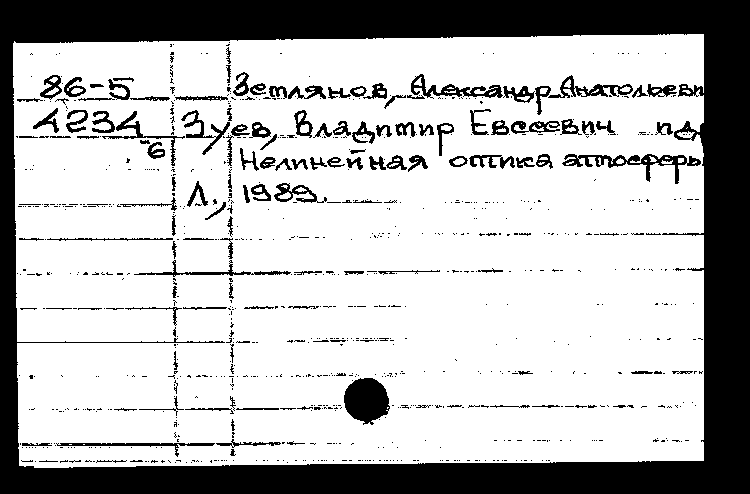 86-5 Землянов, Александр Анатольеви
4234 Зуев, Владимир Евсеевич
-6 Нелинейная оптика атмосферы
Л., 1989.